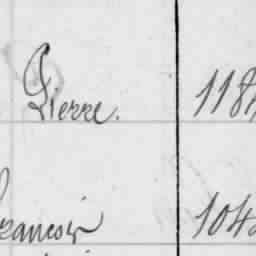 Pierre. 118
François 104